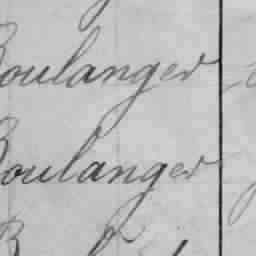 Boulanger
Boulanger